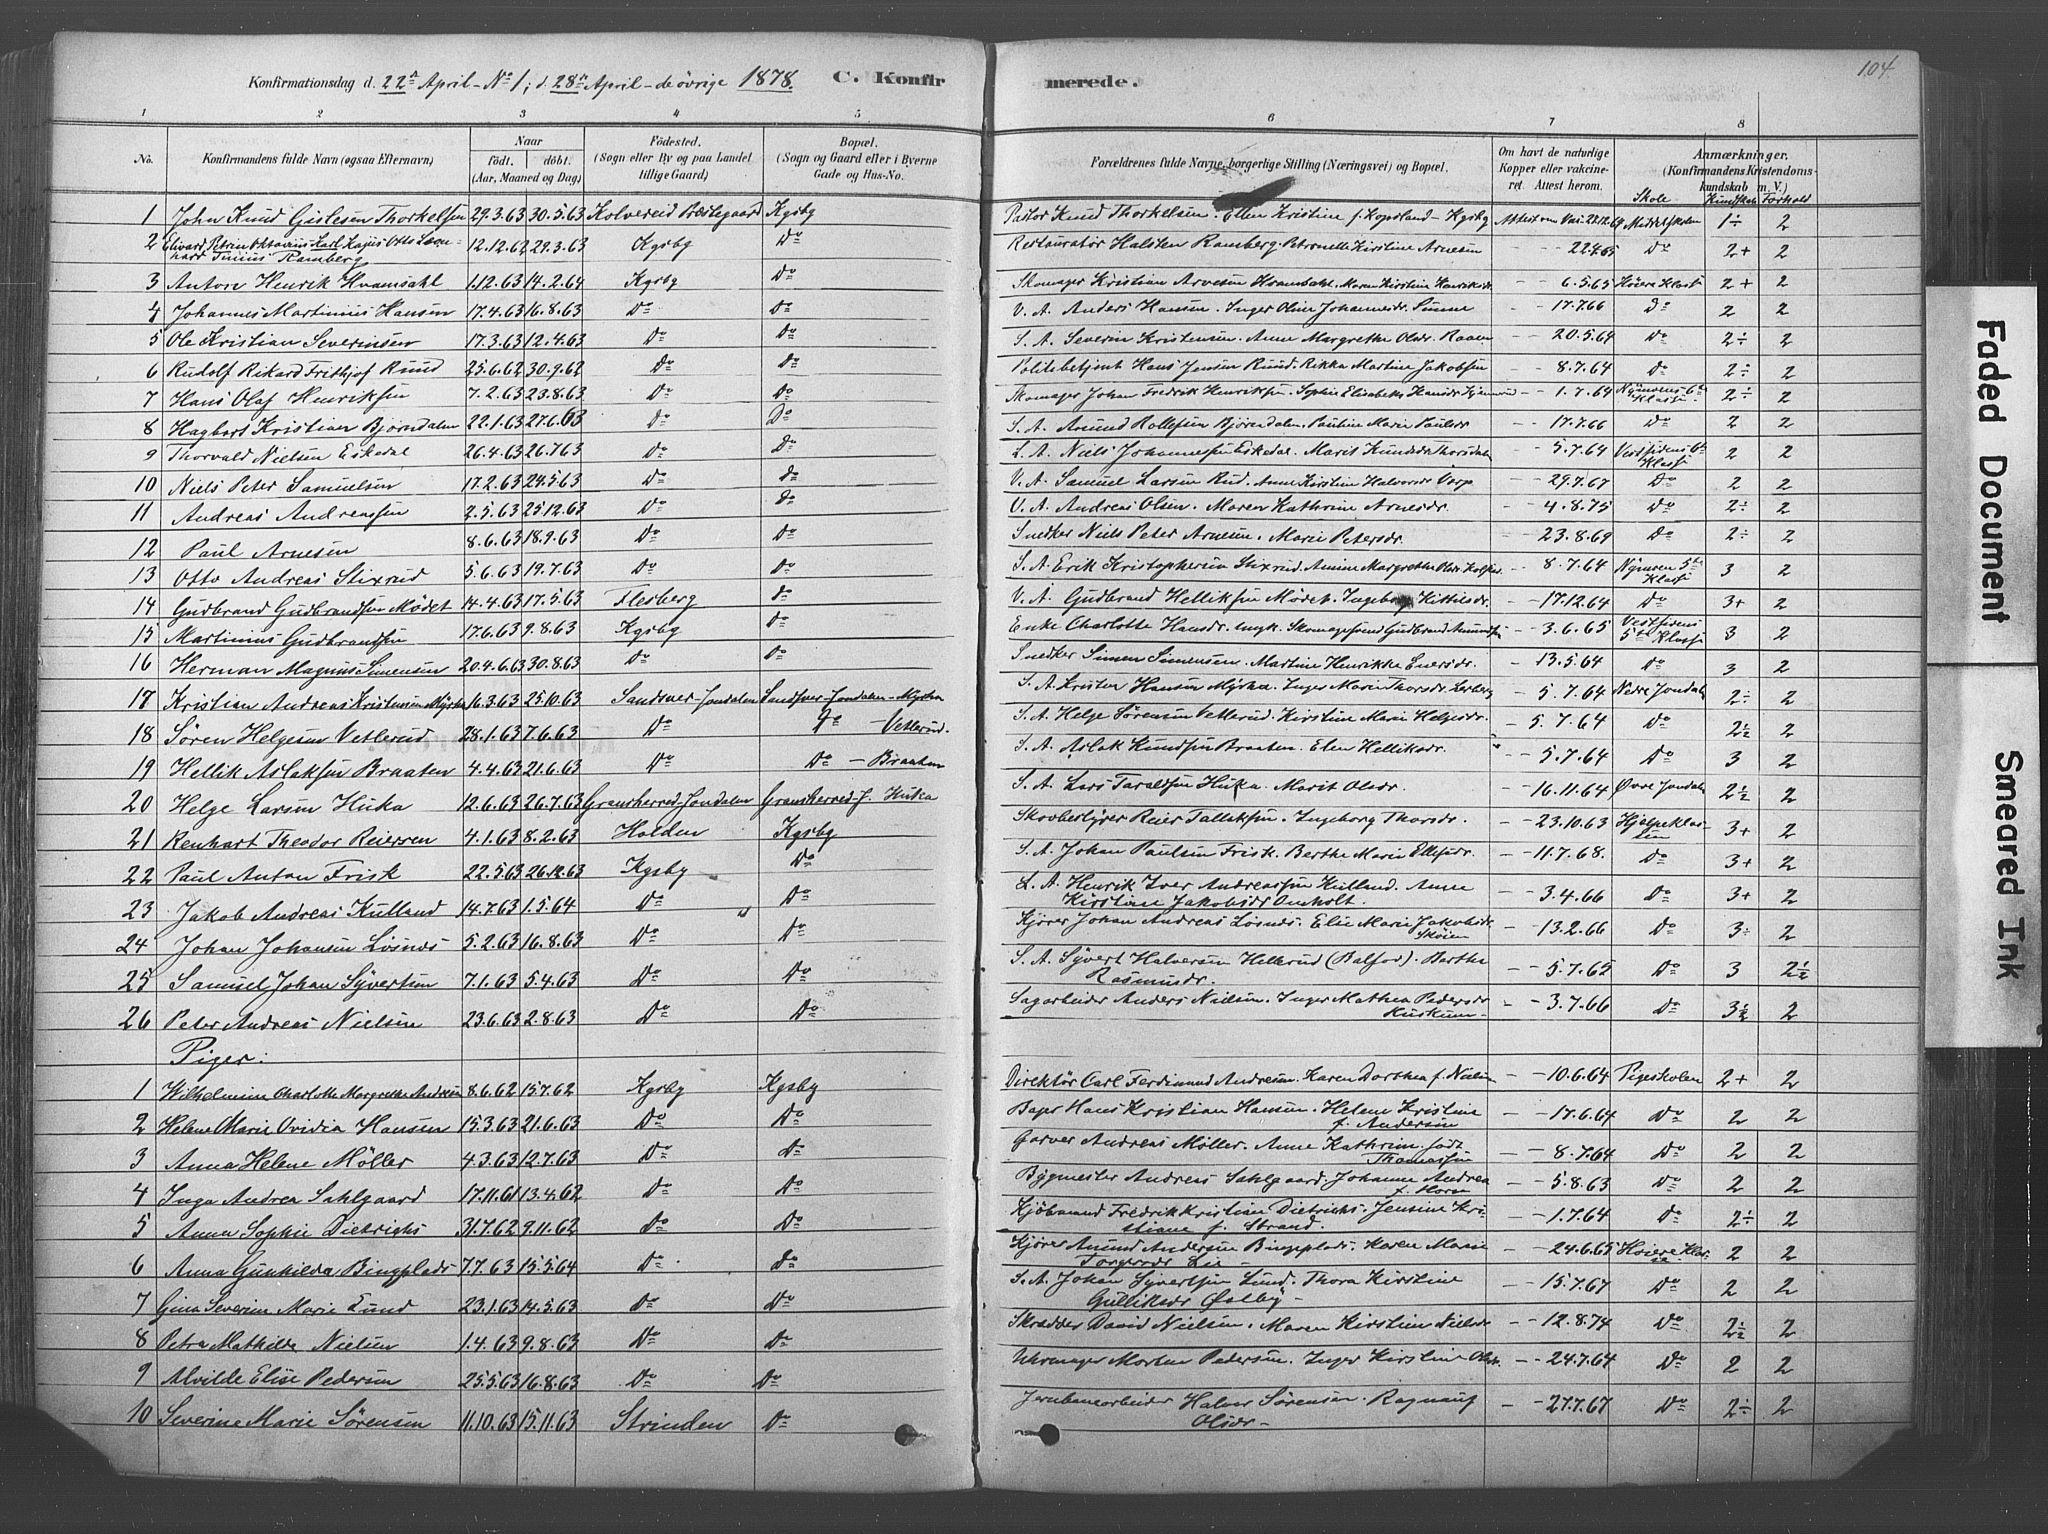 Konfirmationsdag d. 22de April - No 1; d. 28de April - de övrige 1878. C. Konfirmerede. 104.
1 2 3 4 5 6 7 8
No. Konfirmandens fulde Navn (ogsaa Efternavn) Naar födt. döbt. (Aar, Maaned og Dag) Födested. (Sogn eller By og paa Landet tillige Gaard) Bopæl. (Sogn og Gaard eller i Byerne Gade og Hus-No. Forældrenes fulde Navne, borgerlige Stilling (Næringsvei) og Bopæl. Om havt de naturlige Kopper eller vakcineret. Attest herom. Anmærkninger. (Konfirmandens Kristendomskundskab m. V.) Skole Kundskab Forhold
1 John Knud Gislesen Thorkelsen 29.3.63 30.5.63 Kolvereid Prestegaard Kgsby Pastor Knud Thorkelsen. Ellen Kristine f. Kopsland - Kgsby Attest om Vac. 22.12.69 Middelskolen 1÷ 2
2 Edvard Petrin Oktavius Karl Kajus Otto Leonhard Tinius Ramberg 12.12.62 29.3.63 Kgsby Do Restauratør Halsten Ramberg. Petronelle Kirstine Arnesen - - 22.4.65 Do 2+ 2
3 Anton Henrik Hvamsahl 1.12.63 14.2.64 Kgsby Do Skomager Kristian Arvesen Hvamsahl. Maren Kirstine Henriksdr. - - 6.5.65 Höiere Klasse 2+ 2
4 Johannes Martinius Hansen 17.4.63 16.8.63 Do Do V. A. Anders Hansen. Inger Oline Johannesdr. - - 17.7.66 Do 2 2
5 Ole Kristian Severinsen 17.3.63 12.4.63 Do Do S. A. Severin Kristensen. Anne Margrethe Olsdr. Raaen - - 20.5.64 Do 2÷ 2
6 Rudolf Rikard Frithjof Ruud 25.6.62 30.9.62 Do Do Politibetjent Hans Jensen Ruud. Rikka Martine Jakobsen - - 8.7.64 Do 2÷ 2
7 Hans Olaf Henriksen 7.2.63 23.8.63 Do Do Skomager Johan Fredrik Henriksen. Sophie Elisabeth Hansdr. - - 1.7.64 Nymoens 6te Klasse 2÷ 2
8 Hagbart Kristian Bjørndalen 22.1.63 27.6.63 Do Do S. A. Amund Rollefsen Bjørndalen. Pauline Marie Paulsdr. - - 17.7.66 Do 2 2
9 Thorvald Nielsen Eskedal 26.4.63 26.7.63 Do Do S. A. Niels Johannessen Eskedal. Marit Knudsdr. Thorsdalen - - 5.7.64 Vestsidens 6te Klasse 2 2
10 Niels Peter Samuelsen 17.2.63 24.5.63 Do Do V. A. Samuel Larsen Rud. Anne Kirstine Halvorsdr. Varp - - 29.7.67 Do 2 2
11 Andreas Andreassen 2.5.63 25.12.63 Do Do V. A. Andreas Olsen. Maren Kathrine Arnesdr. - - 4.8.75 Do 2÷ 2
12 Paul Arnesen 8.6.63 18.9.63 Do Do Snedker Niels Peter Arnesen. Marie Petersdr. - - 23.8.69 Do 2÷ 2
13 Otto Andreas Stixrud 5.6.63 19.7.63 Do Do S. A. Erik Kristophersen Stixrud. Amine Margrethe Olsdr. - - 8.7.64 Nymoen 5te Klasse 3 2
14 Gudbrand Gudbrandsen Mødet 14.4.63 17.5.63 Flesberg Do V. A. Gudbrand Helliksen Mødet. Ingeborg Kittilsdr. - - 17.12.64 Do 3+ 2
15 Martinius Gudbrandsen 17.6.63 9.8.63 Kgsby Do Enke Charlotte Hansdr. Myk. Skomagersvend Gudbrand Amundsen - 3.6.65 Vestsidens 5te Klasse 3 2
16 Herman Magnus Simensen 20.4.63 30.8.63 Do Do Snedker Simen Simensen. Martine Henrikke Enersdr. - 13.5.64 Do 3 2
17 Kristian Andreas Kristensen Myrka 16.3.63 25.10.63 Sandsver-Jondalen Sandsver-Jondalen-Myrka S. A. Kristen Hansen Myrka. Inger Marie Thorsdr. Lerberg - 5.7.64 Nedre Jondalen 2÷ 2
18 Søren Helgesen Vetlerud 28.1.63 7.6.63 Do Do - Vetlerud. S. A. Helge Sørensen Vetlerud. Kirstine Marie Helgesdr. - 5.7.64 Do 2½ 2
19 Hellik Aslaksen Braaten 4.4.63 21.6.63 Do Do - Braaten S. A. Aslak Knudsen Braaten. Elen Helliksdr. " - 5.7.64 Do 3 2
20 Helge Larsen Huka 12.6.63 26.7.63 Gransherred-Jondalen Gransherred-J. Huka S. A. Lars Taraldsen Huka. Marit Olsdr. - 16.11.64 Øvre Jondalen 2½ 2
21 Renhart Theodor Reiersen 4.1.63 8.2.63 Holden Kgsby Skovbestyrer Reier Tallefsen. Ingeborg Thorsdr. - - 23.10.63 Hjelpeklassen 3+ 2
22 Paul Anton Frisk 22.5.63 26.12.63 Kgsby Do S. A. Johan Paulsen Frisk. Berthe Marie Ellefsdr. - - 11.7.68. Do 3+ 2
23 Jakob Andreas Kulland 14.7.63 1.5.64 Do Do S. A. Henrik Iver Andreassen Kulland. Anne Kirstine Jakobsdr. Omholt. - - 3.4.66 Do 3+ 2
24 Johan Johansen Løsnæs 5.2.63 16.8.63 Do Do Kjører Johan Andreas Løsnæs. Elie Marie Jakobsdr. Skøien - 13.2.66 Do 3÷ 2
25 Samuel Johan Syvertsen 7.1.63 5.4.63 Do Do S. A. Syvert Halversen Hellerud (Balfor). Berthe Rasmusdr. - - 5.7.65 Do 3 2½
26 Peter Andreas Nielsen 23.6.63 2.8.63 Do Do Sagarbeider Anders Nielsen. Inger Mathea Pedersdr. - - 3.7.66 Do 3½ 2
Piger:
1 Wilhelmine Charlotte Margrethe Andresen 8.6.62 15.7.62 Kgsby Kgsby Direktör Carl Ferdinand Andresen. Karen Dorthea f. Nielsen - - 10.6.64 Pigeskolen 2+ 2
2 Helene Marie Ovidia Hansen 15.3.63 21.6.63 Do Do Bager Hans Kristian Hansen. Helene Kristine f. Andersen - - 17.6.64 Do 2 2
3 Anna Helene Møller 4.3.63 12.7.63 Do Do Garver Andreas Møller. Anne Kathrine født Thomassen - - 8.7.64 Do 2 2
4 Inga Andrea Sahlgaard 17.11.61 13.4.62 Do Do Bygmester Andreas Sahlgaard. Johanne Andrea f. Horn - - 5.8.63 Do 2 2
5 Anna Sophie Dietrichs 31.7.62 9.11.62 Do Do Kjöbmand Fredrik Kristian Dietrichs. Jensine Kristiane f. Strand. - - 1.7.64 Do 2÷ 2
6 Anna Gunhilda Bingplads 7.7.63 15.5.64 Do Do Kjører Amund Andersen Bingplads. Karen Marie Torgersdr. Lie - - 24.6.65 Høiere Klasse 2 2
7 Gina Severine Marie Lund 23.1.63 14.5.63 Do Do S. A. Johan Syvertsen Lund. Thora Kirstine Gulliksdr. Østby - - 15.7.67 Do 2 2
8 Petra Mathilde Nielsen 1.4.63 9.8.63 Do Do Skrædder David Nielsen. Maren Kirstine Nielsdr. - - 12.8.74 Do 2½ 2
9 Alvilde Elise Pedersen 25.5.63 16.8.63 Do Do Uhrmager Morten Pedersen. Inger Kirstine Olsdr. - - 24.7.64 Do 2 2
10 Severine Marie Sørensen 11.10.63 15.11.63 Strinden Do Jernbanearbeider Halvor Sørensen. Ragnauf Olsdr - - - 27.7.67 Do 2÷ 2
Faded Document
Smeared Ink